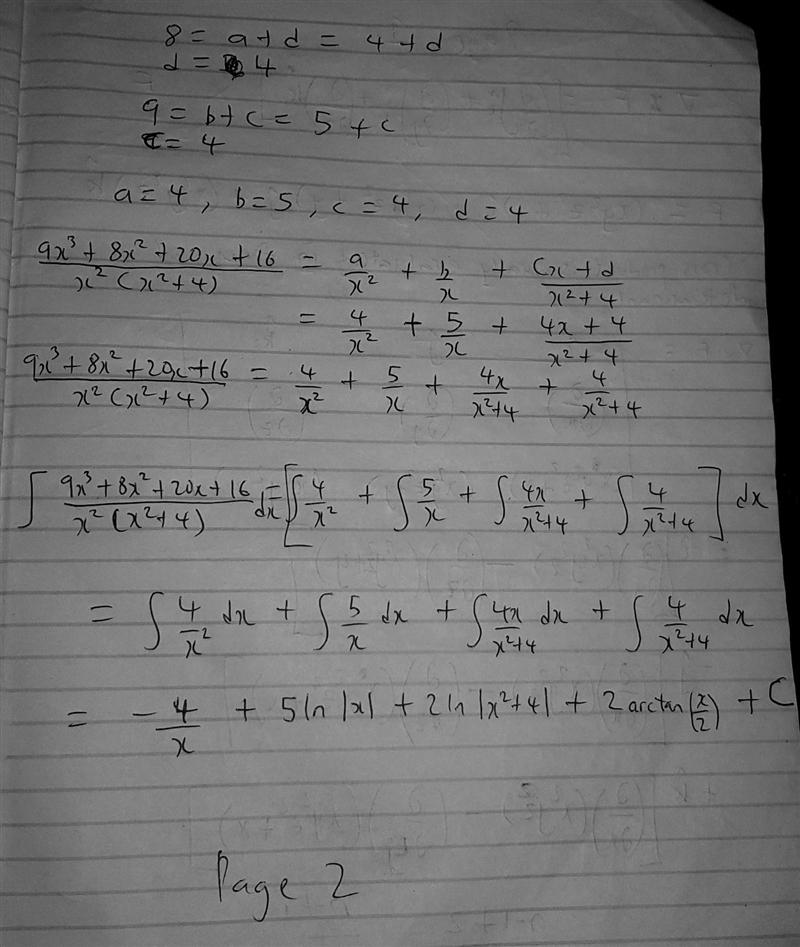 8 = a+d = 4+d
d = 4
9 = b+c = 5+c
c = 4
a=4, b=5, c=4, d=4
(9x³+8x²+20x+16)/(x²(x²+4)) = a/x² + b/x + (cx+d)/(x²+4)
= 4/x² + 5/x + (4x+4)/(x²+4)
(9x³+8x²+20x+16)/(x²(x²+4)) = 4/x² + 5/x + 4x/(x²+4) + 4/(x²+4)
∫ (9x³+8x²+20x+16)/(x²(x²+4)) dx = [∫ 4/x² + ∫ 5/x + ∫ 4x/(x²+4) + ∫ 4/(x²+4)] dx
= ∫ 4/x² dx + ∫ 5/x dx + ∫ 4x/(x²+4) dx + ∫ 4/(x²+4) dx
= -4/x + 5 ln |x| + 2 ln |x²+4| + 2 arctan(x/2) + C
Page 2